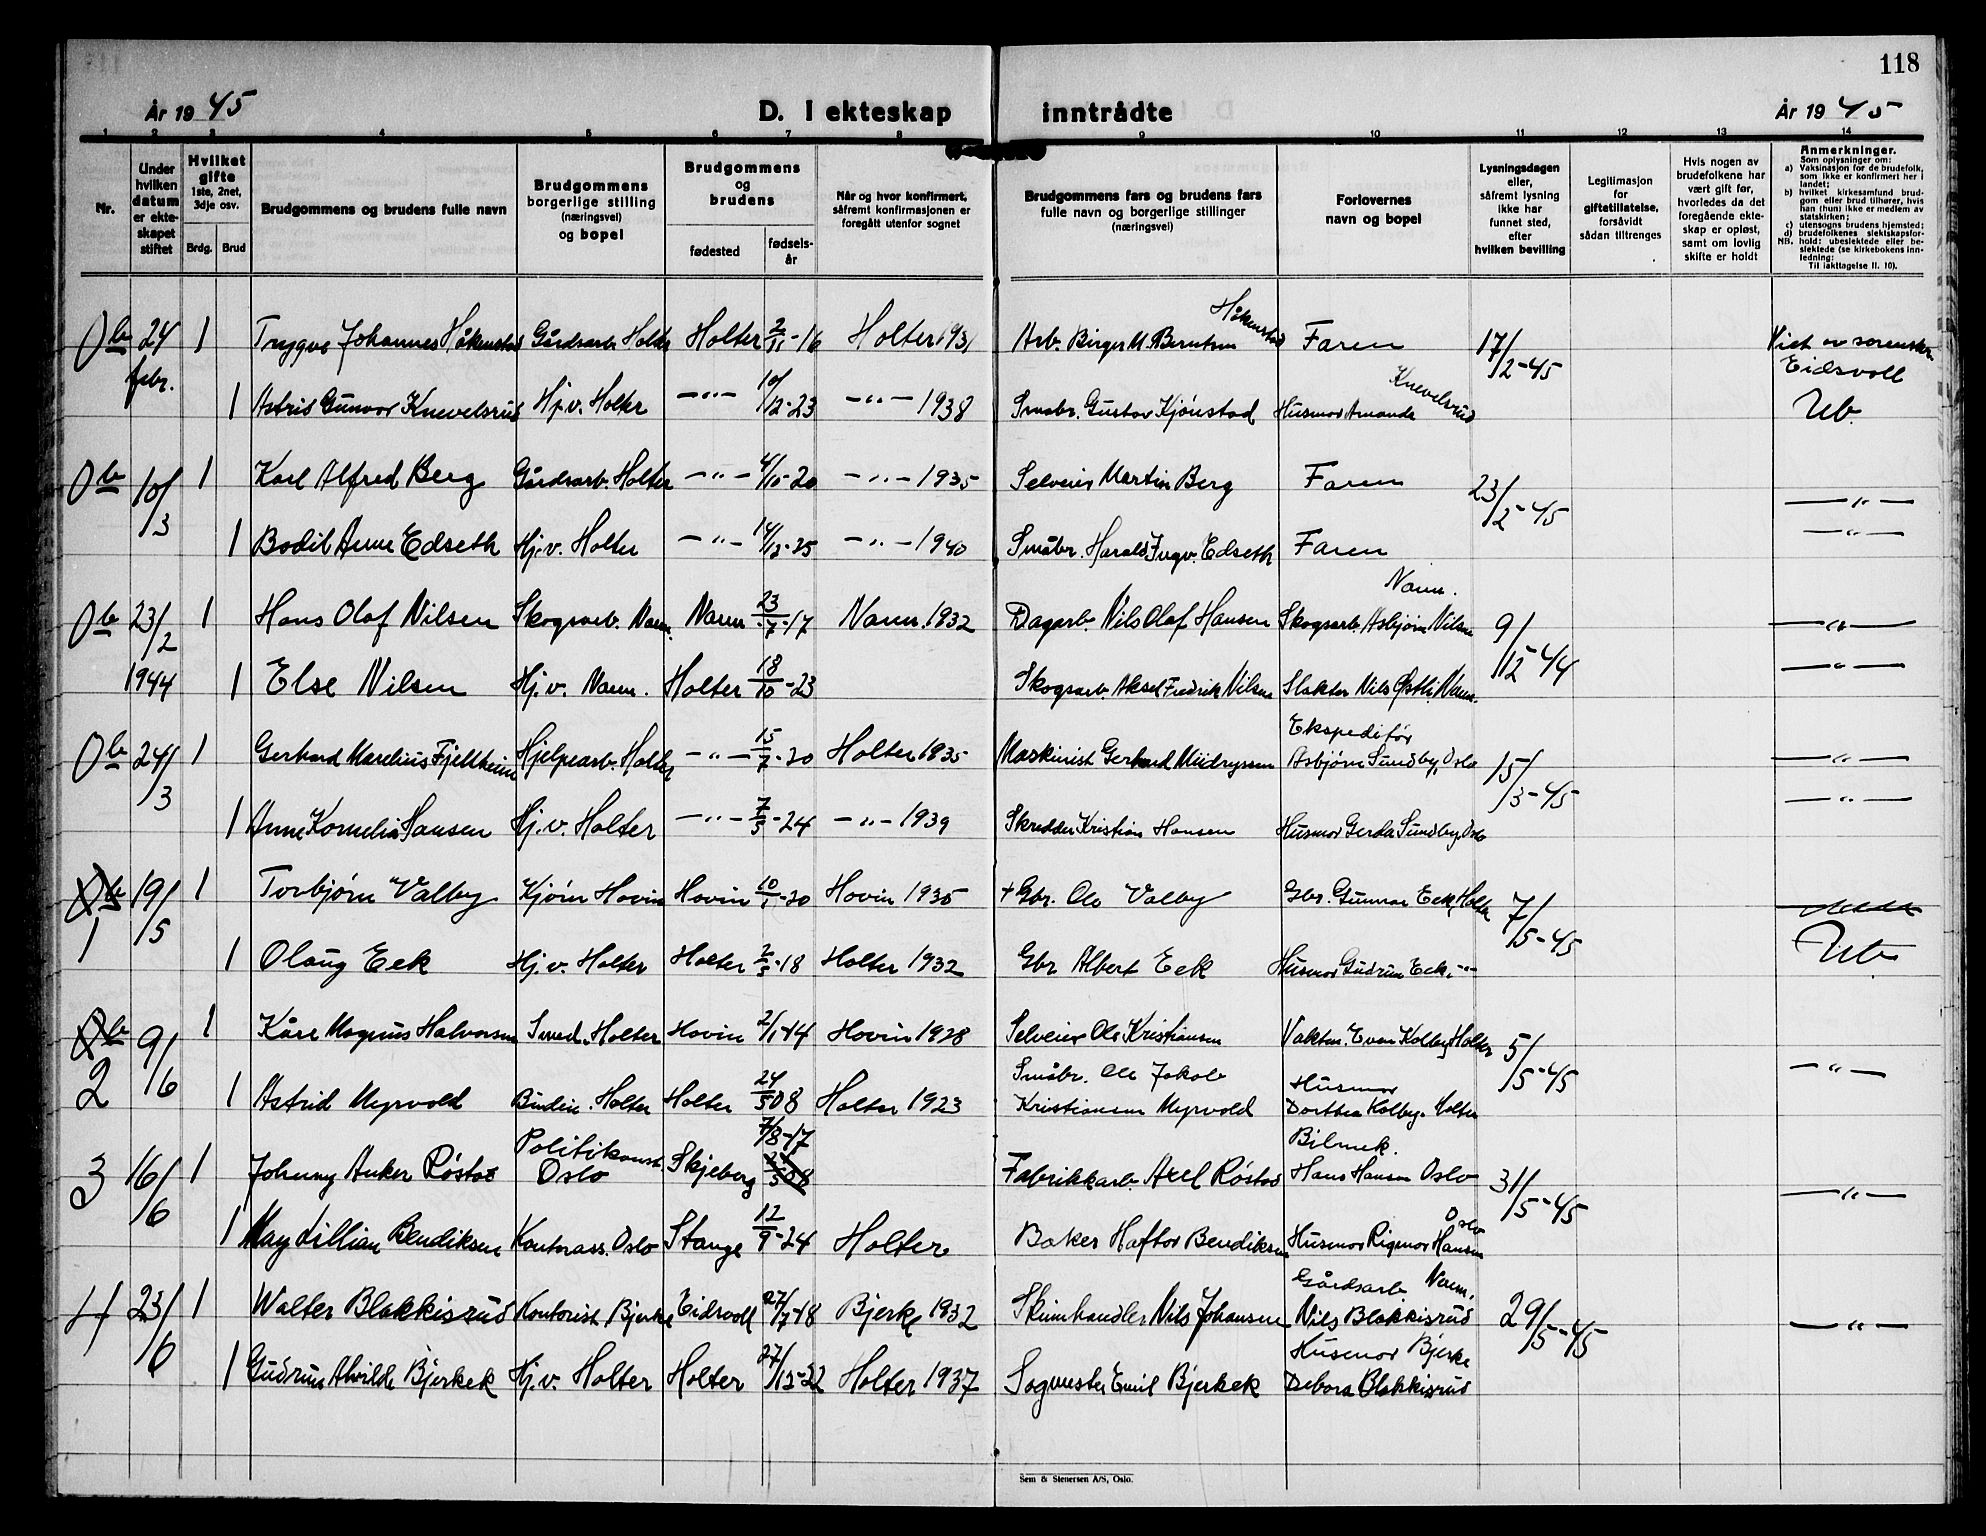 118
År 1945
D. I ekteskap inntrådte
År 1945
1 2 3 4 5 6 7 8 9 10 11 12 13 14
Nr.
Under hvilken datum er ekteskapet stiftet
Hvilket gifte 1ste, 2net, 3dje osv.
Brdg. Brud
Brudgommens og brudens fulle navn
Brudgommens borgerlige stilling (næringsvei) og bopel
Brudgommens og brudens
fødested
fødselsår
Når og hvor konfirmert, såfremt konfirmasjonen er foregått utenfor sognet
Brudgommens fars og brudens fars fulle navn og borgerlige stillinger (næringsvei)
Forlovernes navn og bopel
Lysningsdagen eller, såfremt lysning ikke har funnet sted, efter hvilken bevilling
Legitimasjon for giftetillatelse, forsåvidt sådan tiltrenges
Hvis nogen av brudefolkene har vært gift før, hvorledes da det foregående ekteskap er opløst, samt om lovlig skifte er holdt
Anmerkninger.
Som oplysninger om:
a) Vaksinasjon for de brudefolk, som ikke er konfirmert her i landet;
b) hvilket kirkesamfund brudgom eller brud tilhører, hvis han (hun) ikke er medlem av statskirken;
c) utensogns brudens hjemsted;
d) brudefolkenes slektskapsforhold: ubeslektede eller beslektede (se kirkebokens innledning;
NB. Til iakttagelse II. 10).
Ob 24 febr. 1 Trygve Johannes Håkenstad Gårdsarb. Holter Holter 2/11-16 Holter 1931 Arb. Birger M. Berntsen Håkenstad Faren 17/2-45 Viet av sorenskr. Eidsvoll
1 Astrid Gunvor Knevelsrud Hj.v. Holter —"— 10/2-23 —"— 1938 Småbr. Gustav Kjønstad Husmor Amanda Knevelsrud Ub.
Ob 10/3 1 Karl Alfred Berg Gårdsarb. Holter —"— 4/10-20 —"— 1935 Selveier Martin Berg Faren 23/2-45 —"—
1 Bodil Anne Edseth Hj.v. Holter —"— 14/12-25 —"— 1940 Småbr. Harald Ingv. Edseth Faren —"—
Ob 23/2 1 Hans Olaf Nilsen Skogsarb. Nann. Nann. 23/7-17 Nann. 1932 Dagarb. Nils Olaf Hansen Skogsarb. Asbjørn Nilsen Nann. 9/12-44 —"—
1944 1 Else Nilsen Hj.v. Nann. Holter 18/10-23 Skogsarb. Aksel Fredrik Nilsen Slakter Nils Østli, Nann. —"—
Ob 24/3 1 Gerhard Marelius Fjellheim Hjelpearb. Holter —"— 15/7-20 Holter 1935 Maskinist Gerhard Ekspeditør Asbjørn Sundby, Oslo 15/3-45 —"—
1 Anne Kornelia Hansen Hj.v. Holter —"— 7/5-24 —"— 1939 Skredder Kristian Hansen Husmor Gerda Sundby, Oslo —"—
Ob 1 19/5 1 Torbjørn Valby Kjørn Hovin Hovin 10/1-20 Hovin 1935 + Gbr. Ole Valby Gbr. Gunnar Eek, Holter 7/5-45
1 Olaug Eek Hj.v. Holter Holter 2/5-18 Holter 1932 Gbr Albert Eek Husmor Gudrun Eek, —"— Ub.
Ob 2 9/6 1 Kåre Magnus Halvorsen Smed. Holter Hovin 2/1-14 Hovin 1928 Selveier Ole Kristiansen Vaktm. Even Kolby, Holter 5/5-45
1 Astrid Myrvold Holter Holter 24/5 08 Holter 1923 Småbr. Ole Jakob Kristiansen Myrvold Husmor Dorthea Kolby. Holter —"—
3 16/6 1 Johnny Anker Røstad Politikonst. Oslo Skjeberg 7/8-17 Fabrikkarb. Axel Røstad Bilmek. Hans Hansen Oslo 31/5-45 —"—
1 May Lillian Bendiksen Kontorass. Oslo Stange 12/9-24 Holter Baker Haftor Bendiksen Husmor Rigmor Hansen Oslo
4 23/6 1 Walter Blakkisrud Kontorist Bjerke Eidsvoll 27/7-18 Bjerke 1932 Skinnhandler Nils Johansen Gårdsarb. Nann. Nils Blakkisrud 29/5-45 —"—
1 Gudrun Alvilde Bjerkek Hj.v. Holter Holter 27/12-22 Holter 1937 Sagmester Emil Bjerkek Husmor Bjerke Debora Blakkisrud
Sem & Stenersen A/S, Oslo.